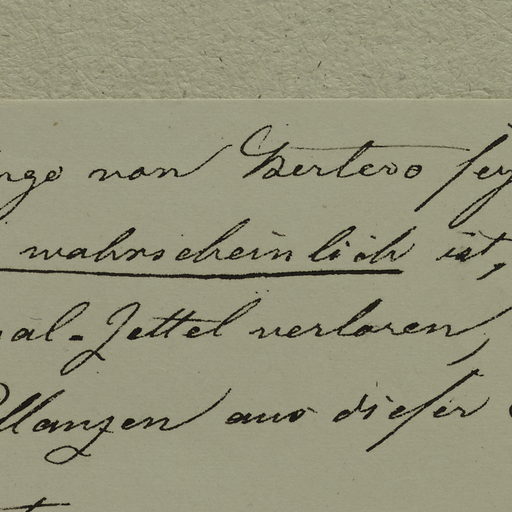 von Bertero
wahrscheinlich ist,
al-Zettel verloren,
Pflanzen aus dieser